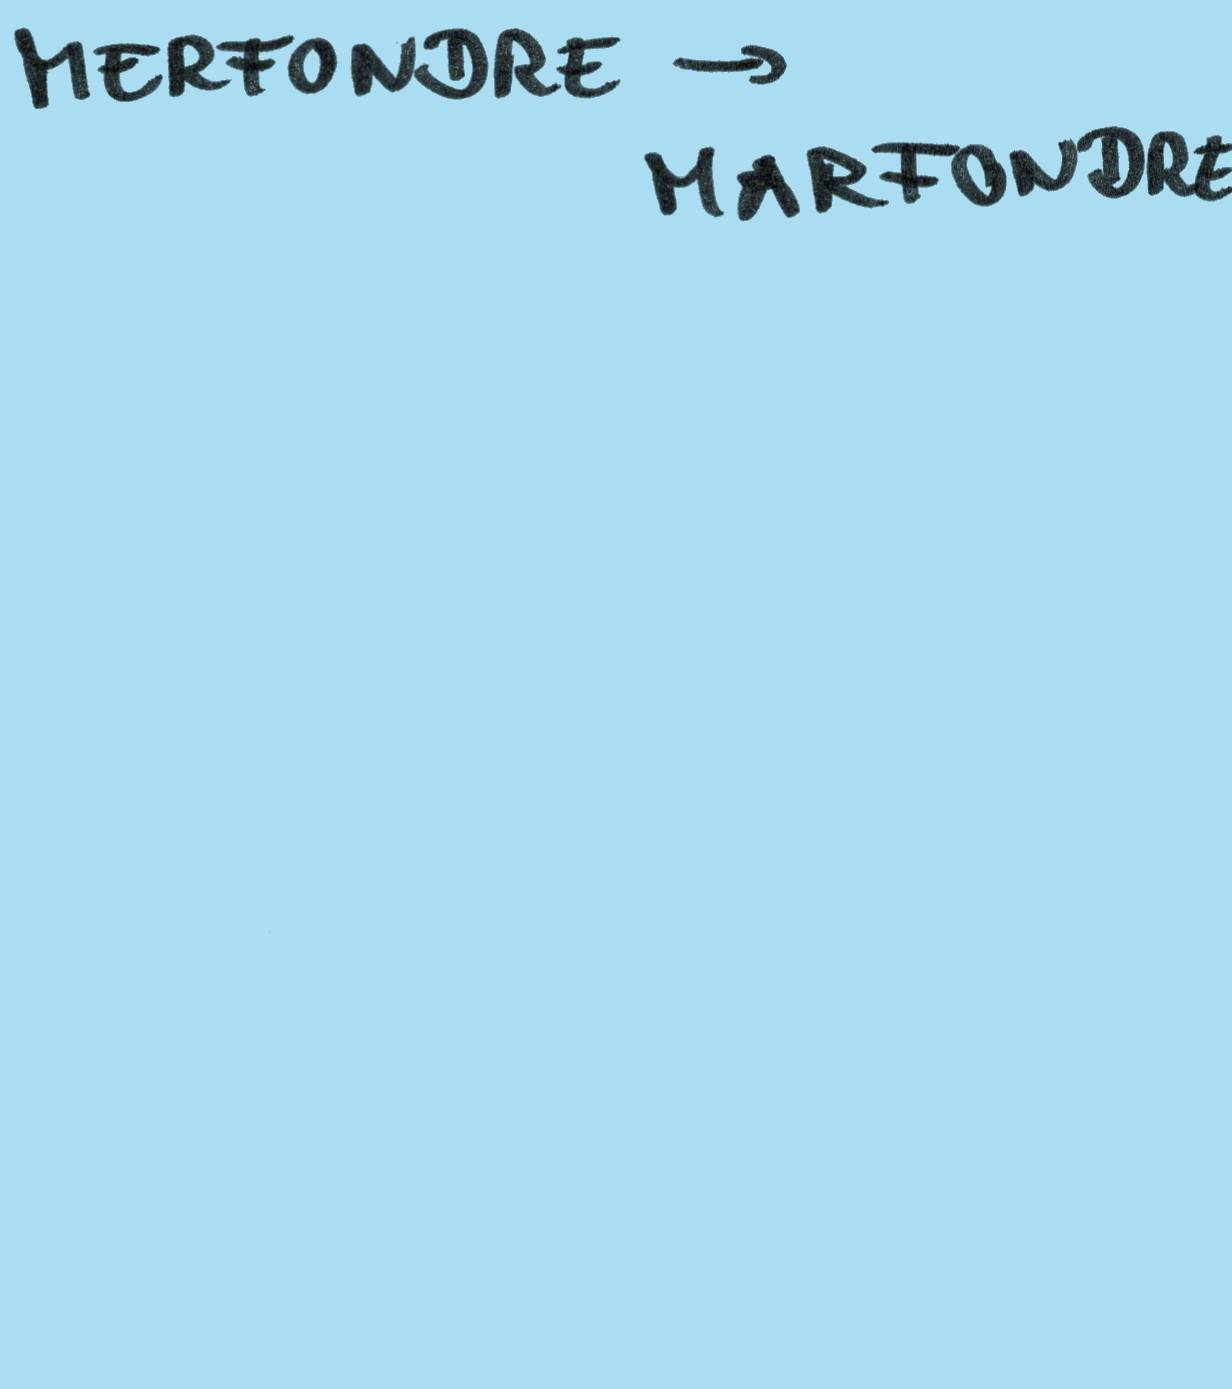 MERFONDRE →
MARFONDRE